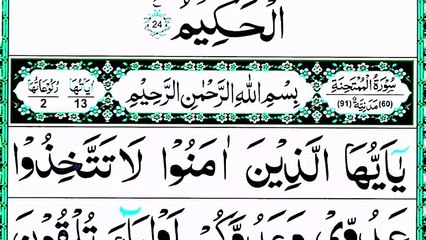 الْحَكِيْمُ ﴿24﴾ ع
سُوْرَةُ الْمُمْتَحِنَةِ (60) مَدَنِيَّةٌ (91) بِسْمِ اللّٰهِ الرَّحْمٰنِ الرَّحِيْمِ اٰيَاتُهَا 13 رُكُوْعَاتُهَا 2
يٰۤاَيُّهَا الَّذِيْنَ اٰمَنُوْا لَا تَتَّخِذُوْا
عَدُوِّىْ وَعَدُوَّكُمْ اَوْلِيَآءَ تُلْقُوْنَ